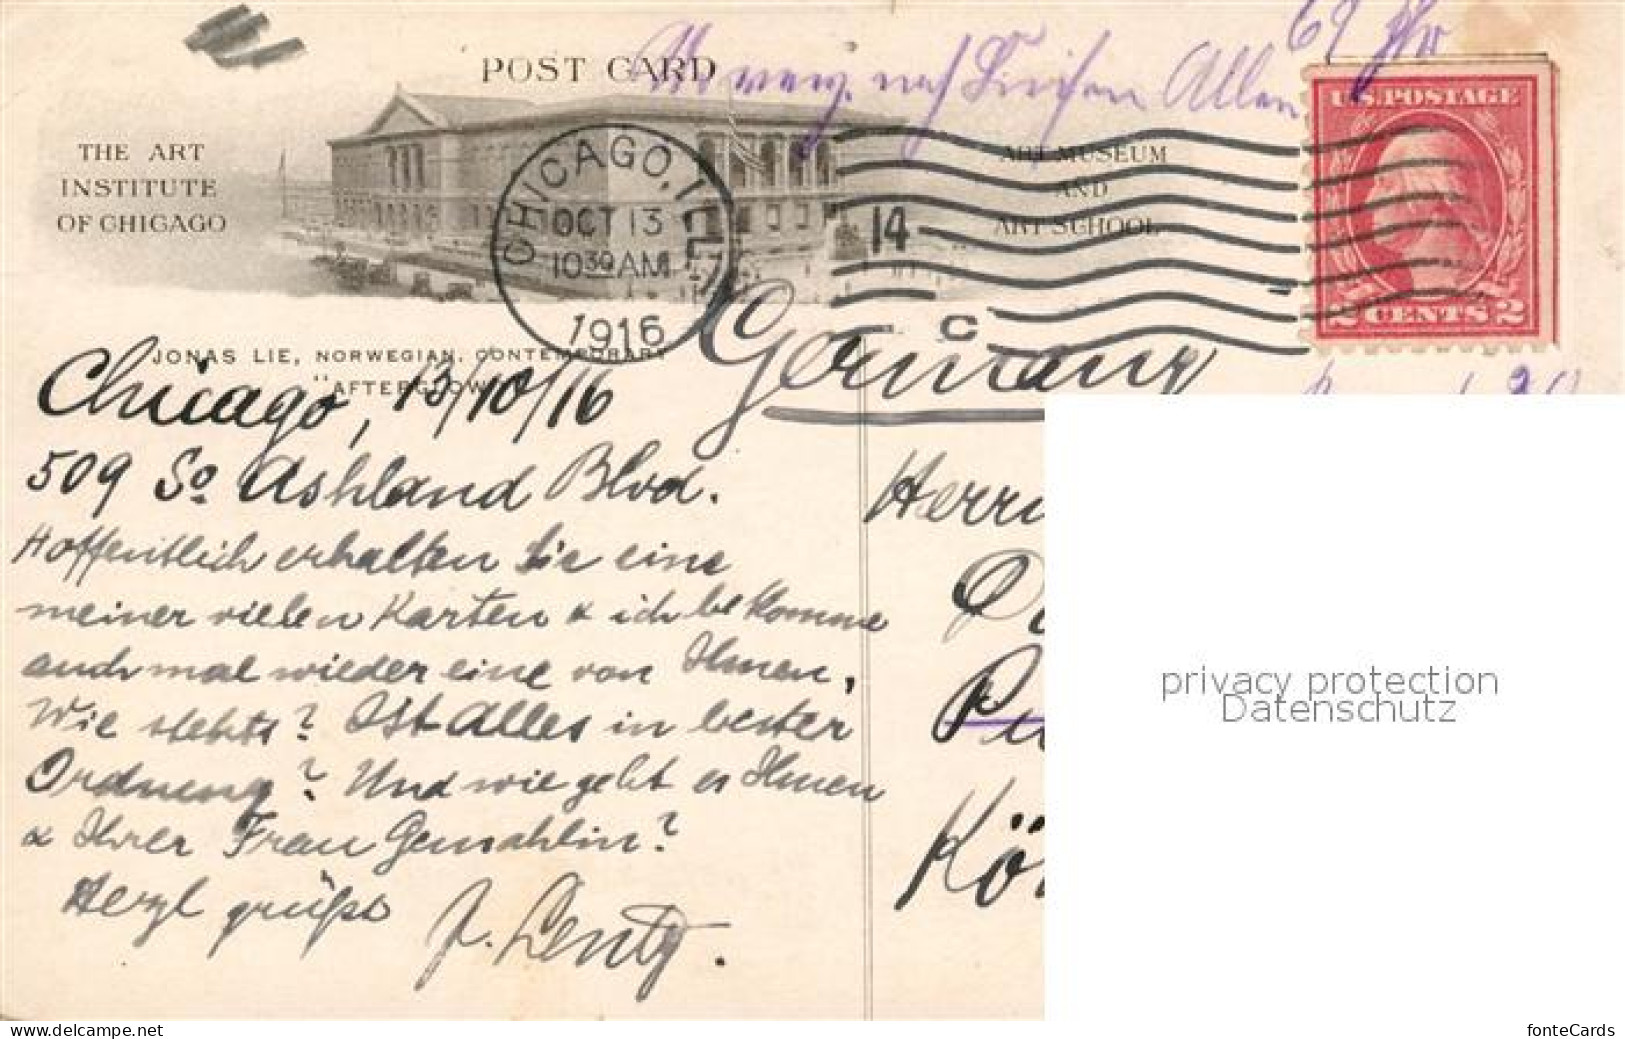 POST CARD
69
nach
Allen
THE ART
INSTITUTE
OF CHICAGO
ART MUSEUM
AND
ART SCHOOL
CHICAGO, ILL.
OCT 13
10 30 AM
1916
14
C
U.S. POSTAGE
2 CENTS 2
JONAS LIE, NORWEGIAN, CONTEMPORARY
"AFTERGLOW"
Germany
Chicago, 13/10/16
509 So Ashland Blvd.
Hoffentlich erhalten Sie eine
meiner vielen Karten & ich bekomme
auch mal wieder eine von Ihnen.
Wie stehts? Ist Alles in bester
Ordnung? Und wie geht es Ihnen
& Ihrer Frau Gemahlin?
Herzl grüßt
J. Lentz.
Herrn
Kö
privacy protection
Datenschutz
www.delcampe.net
fonteCards